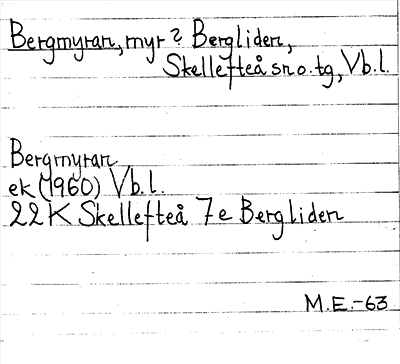 Bergmyran, myr ? Bergliden,
Skellefteå sn o. tg, Vb.l.
Bergmyran
ek (1960) Vb.l.
22K Skellefteå 7e Bergliden
M.E.-63